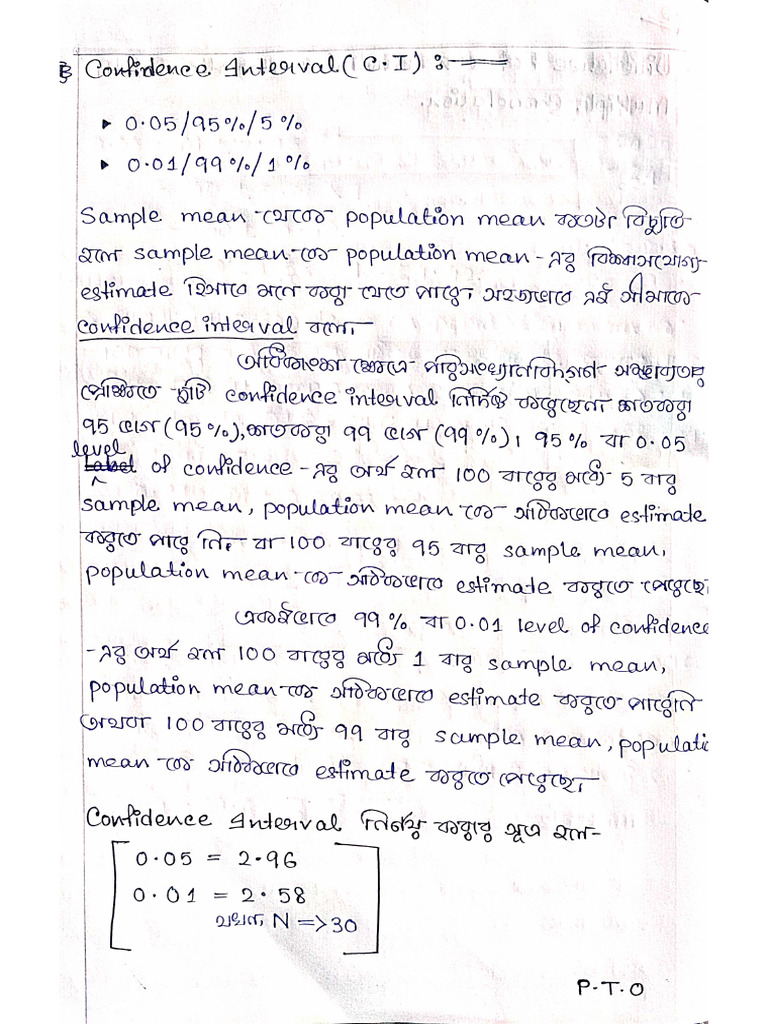 Confidence Interval (C.I) :-
▸ 0.05/95%/5%
▸ 0.01/99%/1%
Sample mean থেকে population mean কতটা বিচ্যুতি
হলে sample mean-কে population mean-এর বিশ্বাসযোগ্য
estimate হিসাবে মনে করা যেতে পারে, সহজভাবে এই সীমাকে
confidence interval বলে।
অধিকাংশ ক্ষেত্রে পরিসংখ্যানবিদ্গণ সম্ভাব্যতার
প্রেক্ষিতে দুটি confidence interval নির্দিষ্ট করেছেন। শতকরা
95 ভাগ (95%), শতকরা 99 ভাগ (99%)। 95% বা 0.05
level
of confidence-এর অর্থ হল 100 বারের মধ্যে 5 বার
sample mean, population mean কে সঠিকভাবে estimate
করতে পারে নি, বা 100 বারের 95 বার sample mean,
population mean-কে সঠিকভাবে estimate করতে পেরেছে।
একইভাবে 99% বা 0.01 level of confidence
-এর অর্থ হল 100 বারের মধ্যে 1 বার sample mean,
population mean-কে সঠিকভাবে estimate করতে পারেনি
অথবা 100 বারের মধ্যে 99 বার sample mean, populati
mean-কে সঠিকভাবে estimate করতে পেরেছে।
Confidence Interval নির্ণয় করার সূত্র হল-
0.05 = 2.96
0.01 = 2.58
যখন N => 30
P.T.O